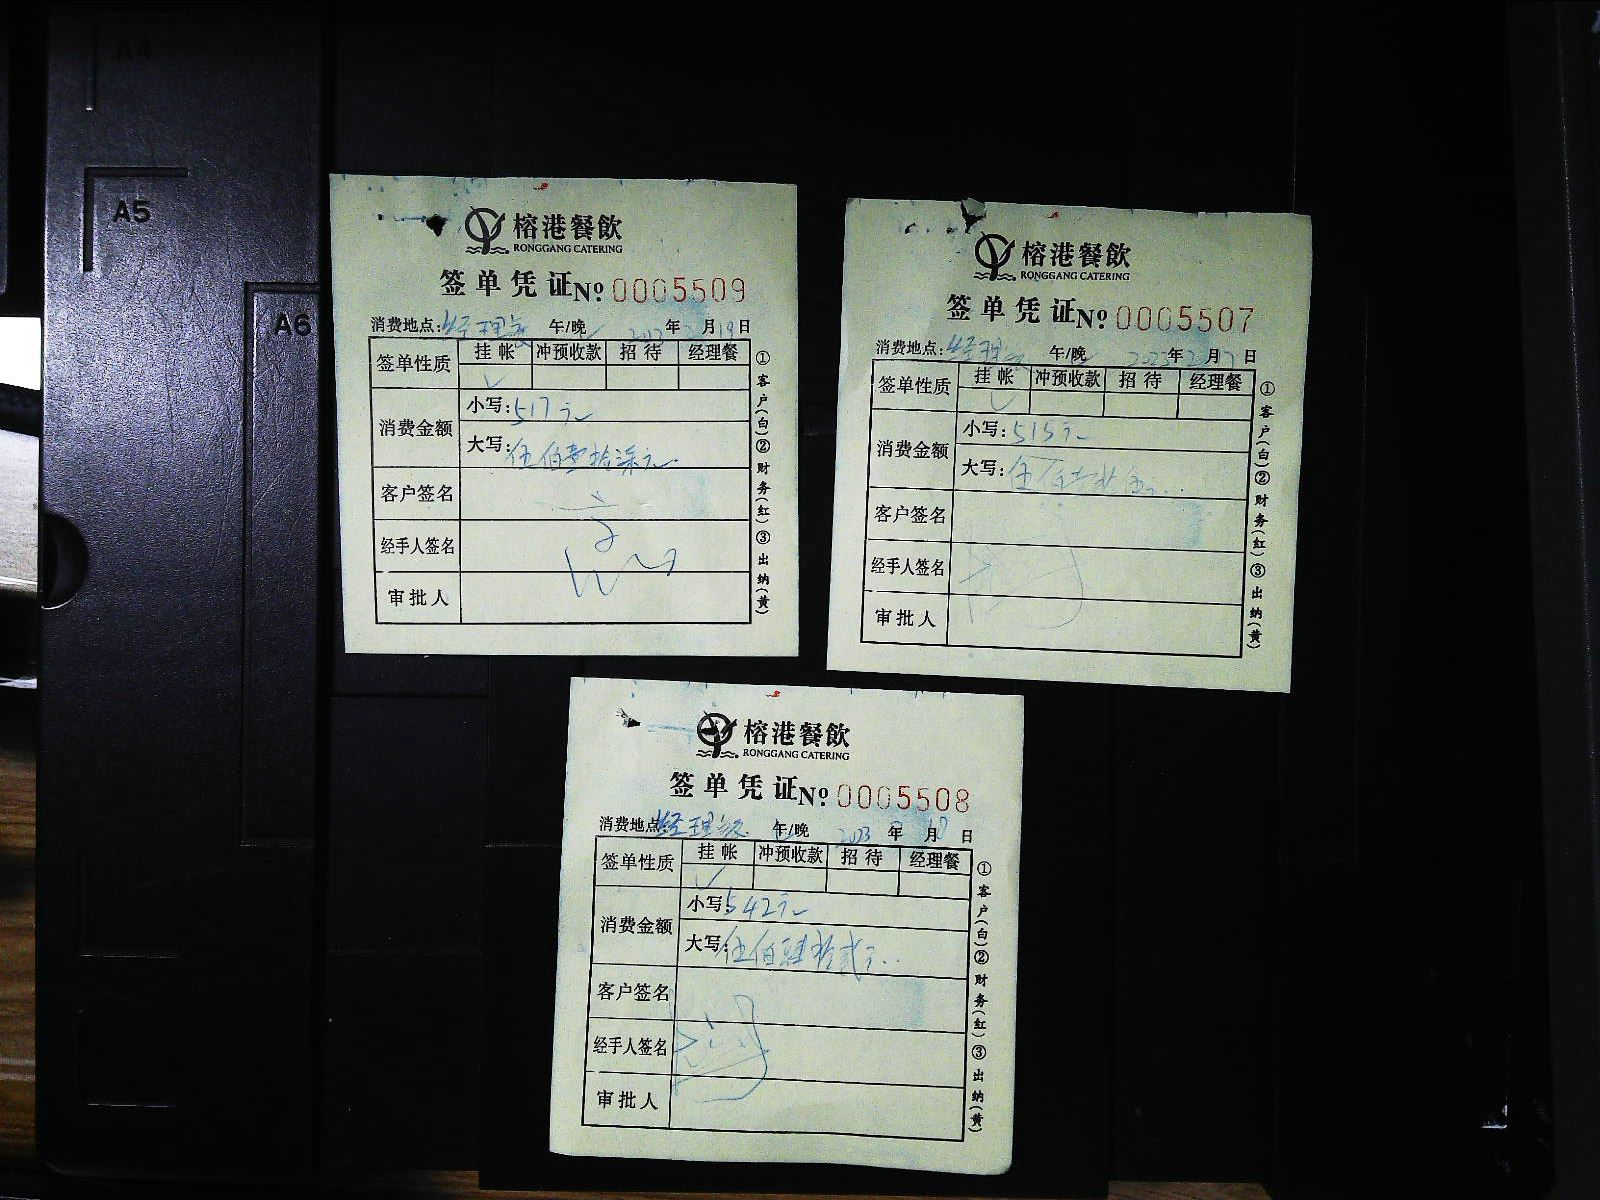 A4
A5
A6
榕港餐飲
RONGGANG CATERING
签单凭证 No 0005509
消费地点: 经理 午/晚 年 月19日
签单性质 挂帐 冲预收款 招待 经理餐
消费金额 小写: 517元
大写: 伍佰壹拾柒元
客户签名
经手人签名
审批人
①客户(白)②财务(红)③出纳(黄)
榕港餐飲
RONGGANG CATERING
签单凭证 No 0005507
消费地点: 经理 午/晚 2023年2月17日
签单性质 挂帐 冲预收款 招待 经理餐
消费金额 小写: 515元
大写: 伍
客户签名
经手人签名
审批人
①客户(白)②财务(红)③出纳(黄)
榕港餐飲
RONGGANG CATERING
签单凭证 No 0005508
消费地点: 经理 午/晚 2023年 月18日
签单性质 挂帐 冲预收款 招待 经理餐
消费金额 小写: 542元
大写: 伍佰肆拾贰元
客户签名
经手人签名
审批人
①客户(白)②财务(红)③出纳(黄)